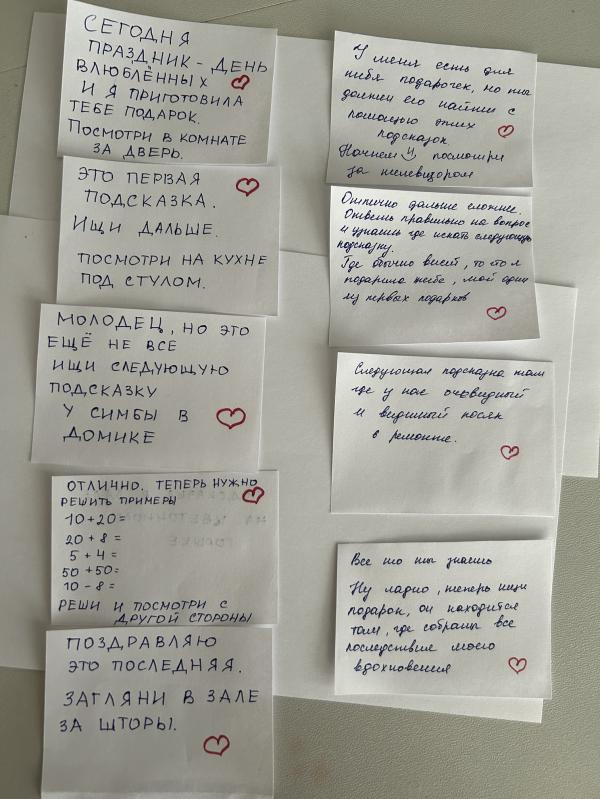 СЕГОДНЯ
ПРАЗДНИК - ДЕНЬ
ВЛЮБЛЁННЫХ
И Я ПРИГОТОВИЛА
ТЕБЕ ПОДАРОК.
ПОСМОТРИ В КОМНАТЕ
ЗА ДВЕРЬ.
ЭТО ПЕРВАЯ
ПОДСКАЗКА.
ИЩИ ДАЛЬШЕ.
ПОСМОТРИ НА КУХНЕ
ПОД СТУЛОМ.
МОЛОДЕЦ, НО ЭТО
ЕЩЁ НЕ ВСЕ
ИЩИ СЛЕДУЮЩУЮ
ПОДСКАЗКУ
У СИМБЫ В
ДОМИКЕ
ОТЛИЧНО. ТЕПЕРЬ НУЖНО
РЕШИТЬ ПРИМЕРЫ
10+20=
20+8=
5+4=
50+50=
10-8=
РЕШИ И ПОСМОТРИ С
ДРУГОЙ СТОРОНЫ
ПОЗДРАВЛЯЮ
ЭТО ПОСЛЕДНЯЯ.
ЗАГЛЯНИ В ЗАЛЕ
ЗА ШТОРЫ.
У меня есть для
тебя подарочек, но ты
должен его найти с
помощью этих
подсказок
Начнем посмотри
за телевизором
Отлично дальше сложнее.
Ответь правильно на вопрос
и узнаешь где искать следующую
подсказку.
Где обычно висит, то что я
подарила тебе, мой один
из первых подарков
Следующая подсказка там
где у нас очевидный
и видимый косяк
в ремонте.
Все то ты знаешь
Ну ладно, теперь ищи
подарок, он находится
там, где собраны все
последствия моего
вдохновения